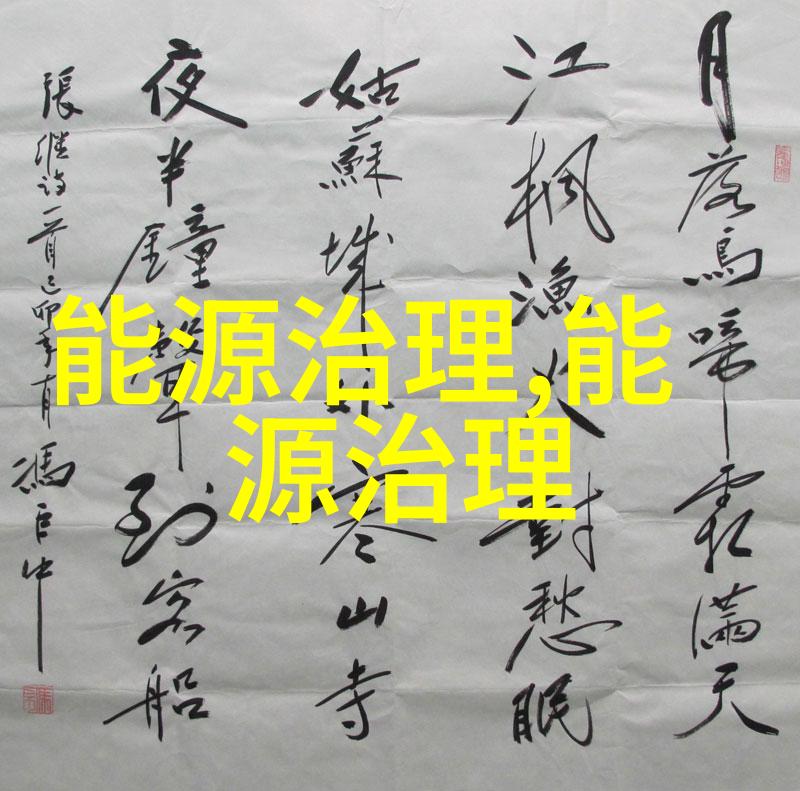 能源治理,能
源治理
月落烏啼霜滿天
江楓漁火對愁眠
姑蘇城外寒山寺
夜半鐘聲到客船
張繼詩一首己卯年